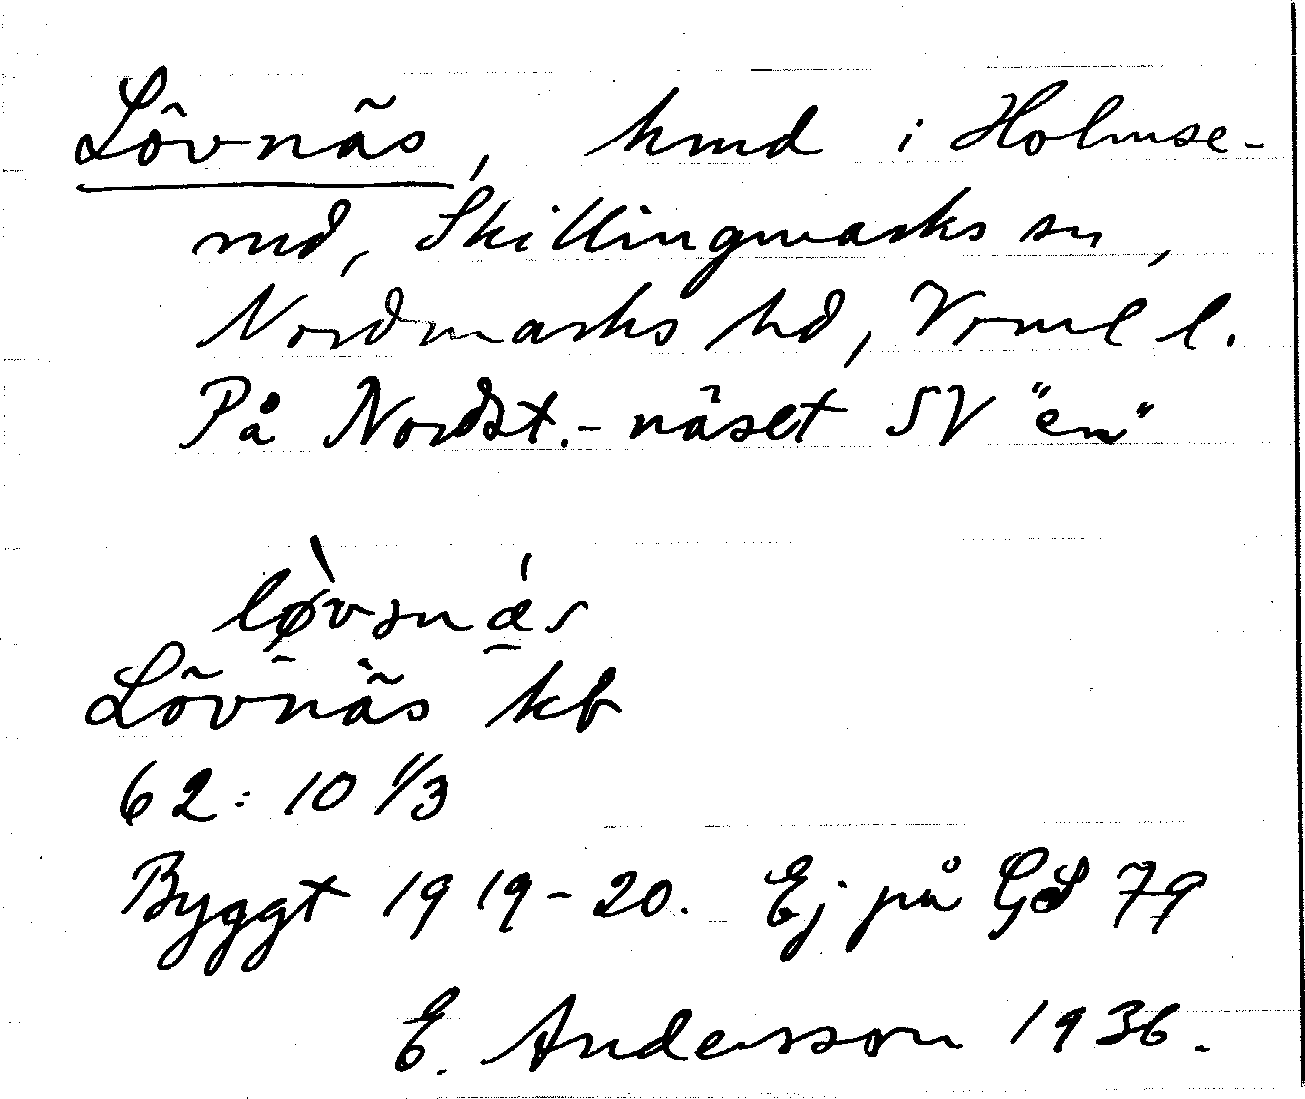 Lövnäs, hmd i Holmse-
rud, Skillingmarks sn,
Nordmarks hd, Vrml l.
På Nordst.-näset SV "en"
Lövnäs kb
62:10 1/3
Byggt 1919-20. Ej på GS 79
E. Andersson 1936.